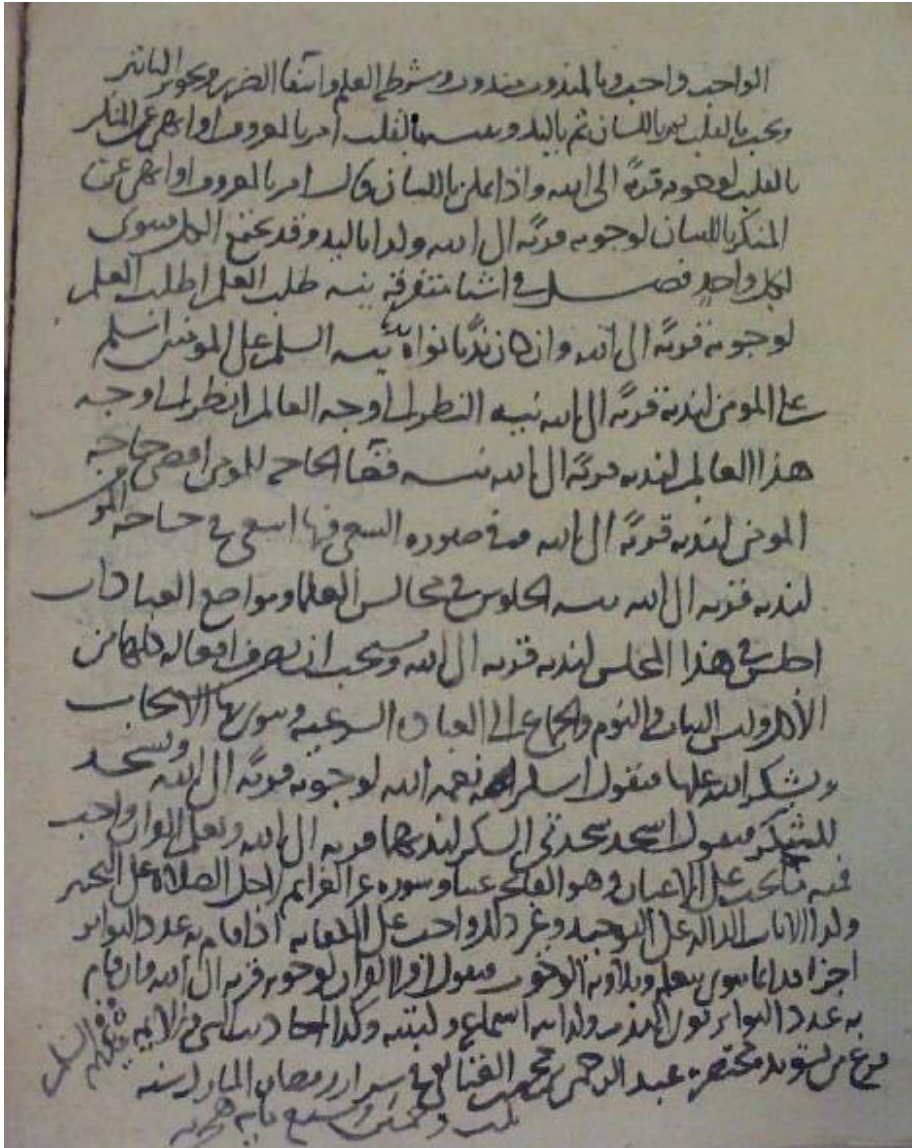 الواجب واجب وبالمندوب مندوب وشرط العلم وانتفا الضرر وتجويز التاثير
ويجب بالقلب ثم باللسان ثم باليد وينويه بالقلب امر بالمعروف او انهى عن المنكر
بالقلب لوجوبه قربة الى الله واذا علن باللسان قال امر بالمعروف او انهى عن
المنكر باللسان لوجوبه قربة الى الله وكذا باليد وقد يجتمع الكل فينوى
لكل واحد فصل في اشيا متفرقة نية طلب العلم اطلب العلم
لوجوبه قربة الى الله وان كان ندبا نواه نية السلم على المومنين اسلم
على المومن لندبه قربة الى الله نية النظر الى وجه العالم انظر الى وجه
هذا العالم لندبه قربة الى الله نية قضا الحاجة للمومن اقضى حاجة
المومن لندبه قربة الى الله وفي صورة السعي فيها اسعى في حاجة المومن
لندبه قربة الى الله نية الجلوس في مجالس العلما ومواضع العبادات
اجلس في هذا المجلس لندبه قربة الى الله ويستحب ان يصرف افعاله كلها من
الأكل ولبس الثياب والنوم والجماع الى العبادة الشرعية وينوى بها الاستحباب
ويشكر الله عليها فيقول اشكر نعمة الله لوجوبه قربة الى الله ويسجد
للشكر فيقول اسجد سجدتي الشكر لندبهما قربة الى الله وتعلم القران واجب
فمنه ما يجب على الاعيان وهو الفاتحة عينا وسورة من القرآن لاجل الصلاة على التخيير
وكذا الايات الداله على التوحيد وغير ذلك واجب على الكفاية اذا قام به عدد التواتر
اجزا فينوى بتعلمه وتلاوته الوجوب فيقول اقرا القران لوجوبه قربة الى الله فان قام
به عدد التواتر نوى الندب وكذا نية اسماعه وكتبته وكذا احاديث النبي والائمة عليهم السلم
فرغ من تسويده مختصره عبد الرحمن بن محمد العتائقي في شهر رمضان المبارك سنة
ثلث وخمسين وسبع ماية هجرية